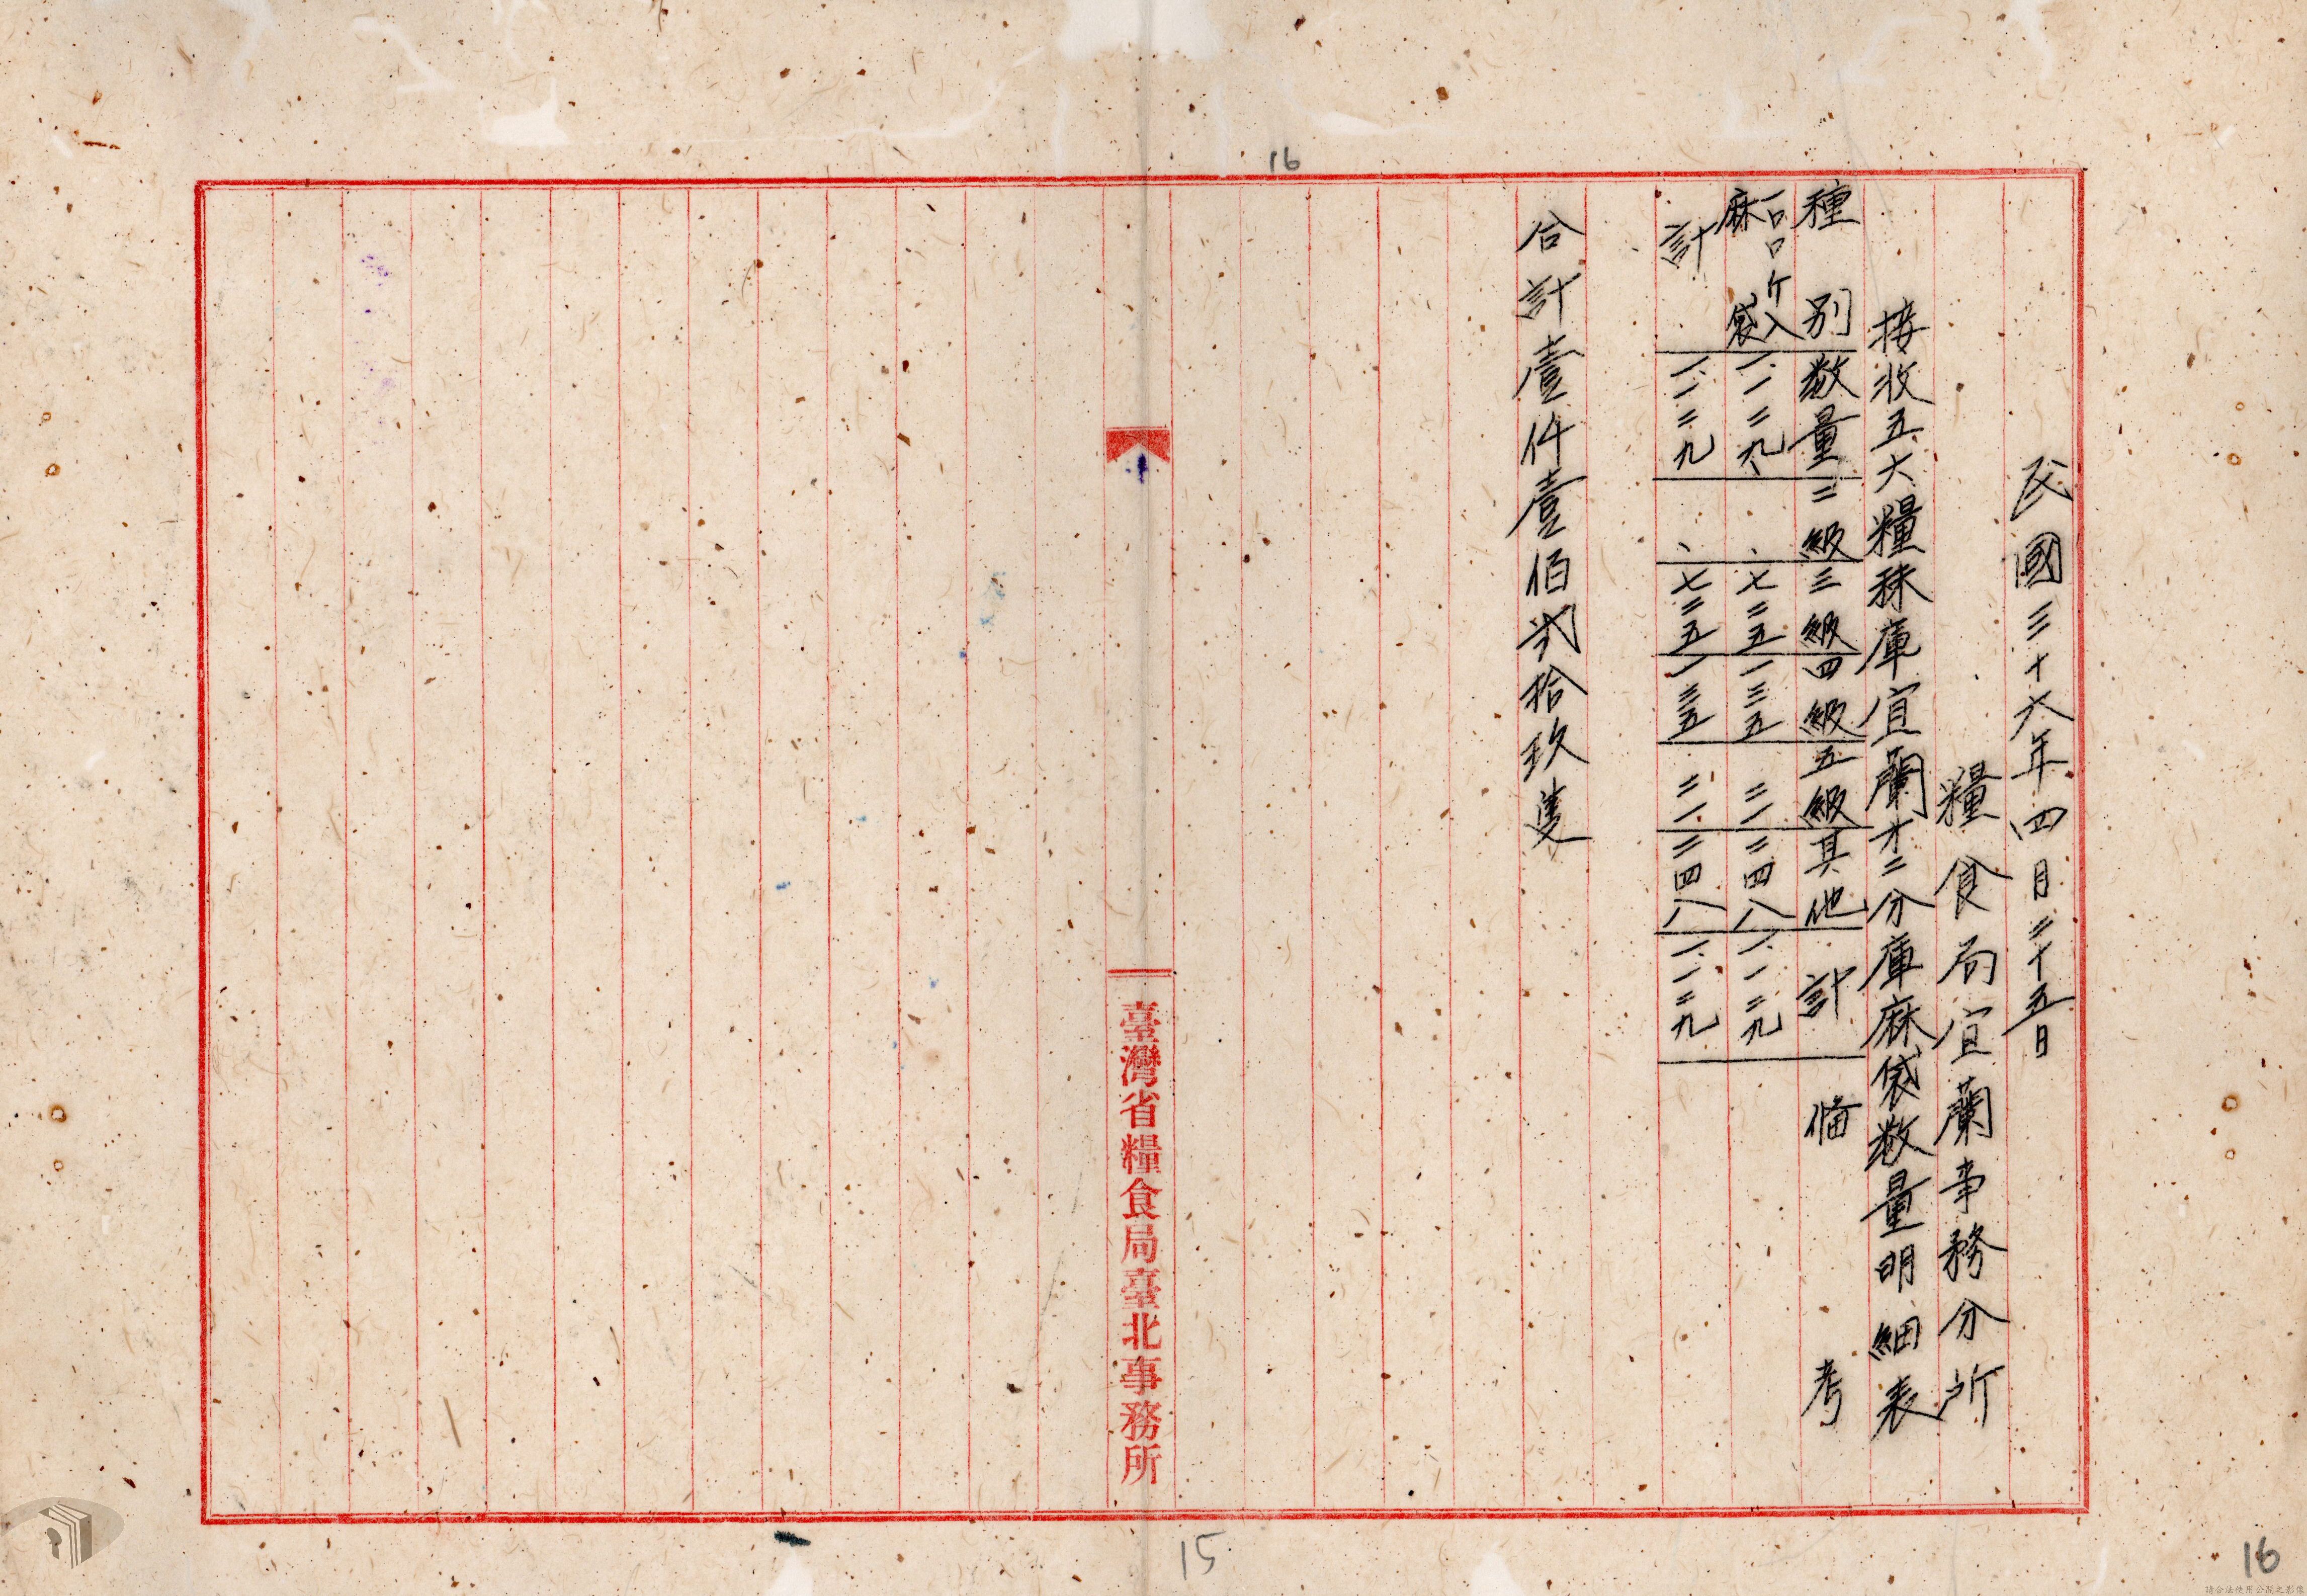 民國三十六年四月二十五日
糧食局宜蘭事務分所
接收五大糧秣庫宜蘭才二分庫麻袋数量明細表
種別 数量 二級 三級 四級 五級 其他 計 俻考
一〇〇斤入麻袋 一.一二九 、 七二五 一三五 二一 二四八 一.一二九
計 一.一二九 、 七二五 一三五 二一 二四八 一.一二九
合計壹仟壹佰弐拾玖隻
臺灣省糧食局臺北事務所
16
15
16
請合法使用公開之影像